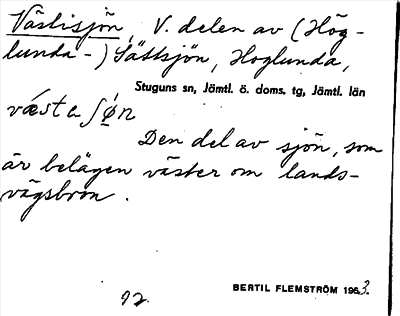 Västisjön, V. delen av (Hög-
lunda-) Sättsjön, Hoglunda,
Stuguns sn, Jämtl. ö. doms. tg, Jämtl. län
væ̀sta ʃǿ̣n
Den del av sjön, som
är belägen väster om lands-
vägsbron.
BERTIL FLEMSTRÖM 1953.
92.